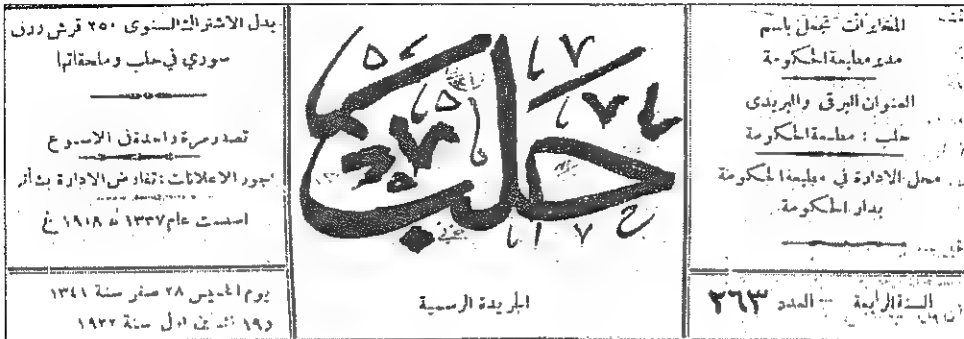 المخابرات تجعل باسم
مدير مطبعة الحكومة
العنوان البرقي والبريدي
حلب : مطبعة الحكومة
محل الادارة في مطبعة الحكومة
بدار الحكومة
السنة الرابعة — العدد ٣٦٣
حلب
الجريدة الرسمية
بدل الاشتراك السنوى ٢٥٠ قرش ورق
سوري في حلب وملحقاتها
تصدر مرة واحدة فى الاسبوع
اجور الاعلانات : تفاوض الادارة بشأنها
اسست عام ١٣٣٧ ه ١٩١٨ غ
يوم الخميس ٢٨ صفر سنة ١٣٤١
و١٩ تشرين اول سنة ١٩٢٢